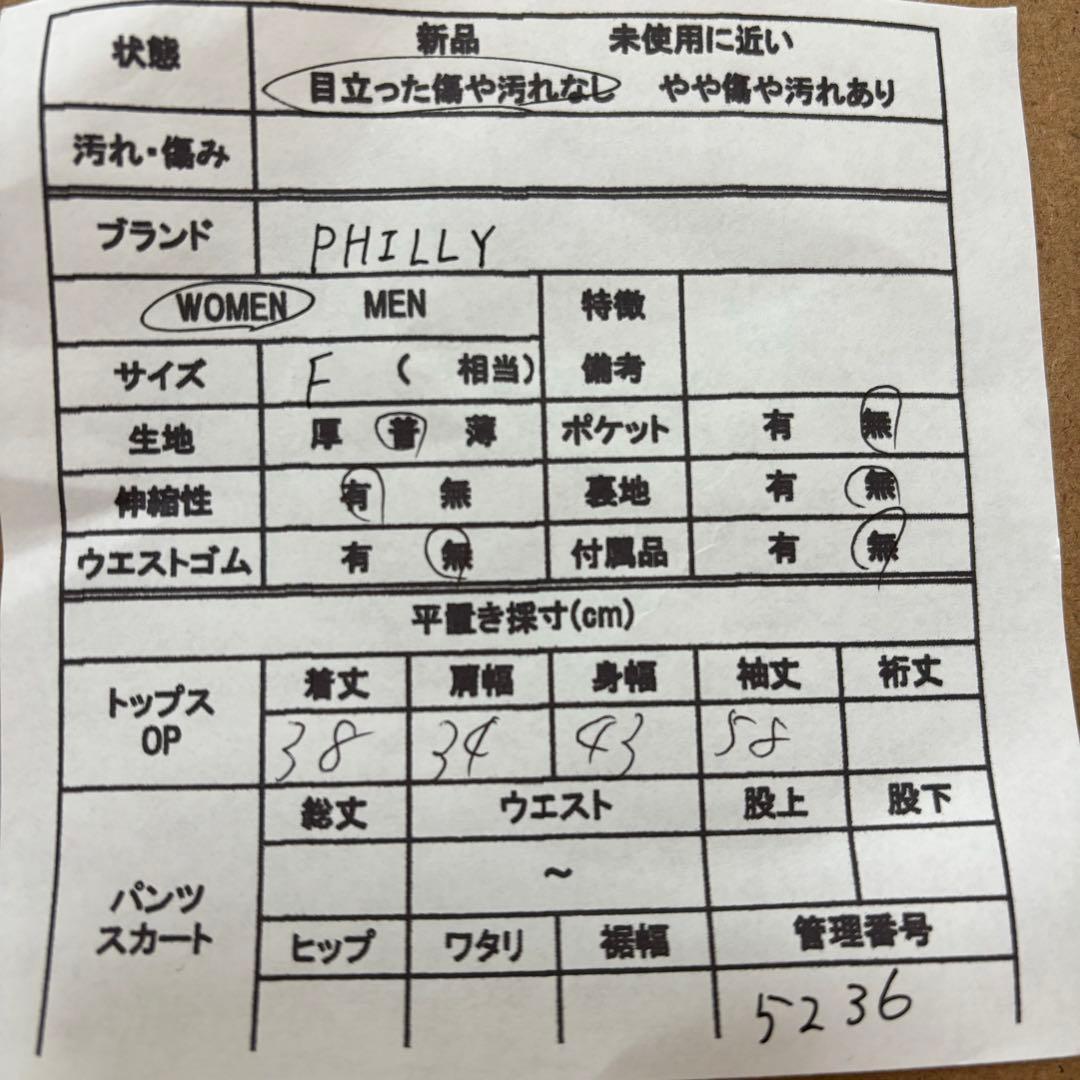 状態 新品 未使用に近い
目立った傷や汚れなし やや傷や汚れあり
汚れ・傷み
ブランド PHILLY
WOMEN MEN 特徴
サイズ F ( 相当) 備考
生地 厚 普 薄 ポケット 有 無
伸縮性 有 無 裏地 有 無
ウエストゴム 有 無 付属品 有 無
平置き採寸(cm)
トップス 着丈 肩幅 身幅 袖丈 裄丈
OP 38 34 43 58
総丈 ウエスト 股上 股下
パンツ ~
スカート ヒップ ワタリ 裾幅 管理番号
5236